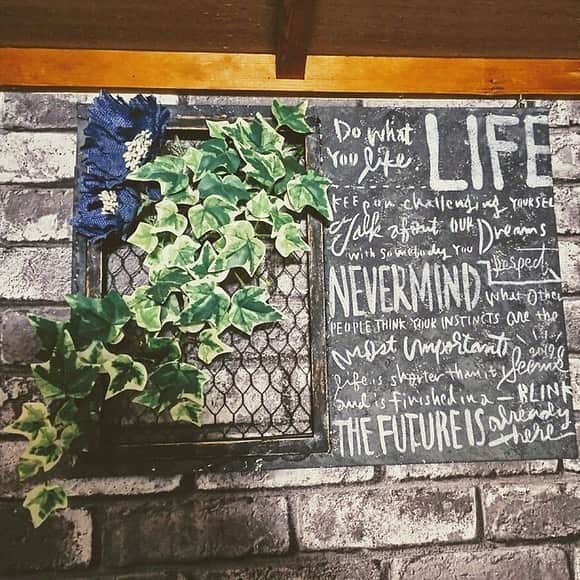 Do what LIFE
You like
KEEP on challenging YOURSEL
Talk about OUR Dreams
with somebody YOU
Respect
NEVERMIND what Other
PEOPLE THINK YOUR INSTINCTS are the
most important!
life is shorter than it Seems
and is finished in a BLINK
THE FUTURE IS already
here